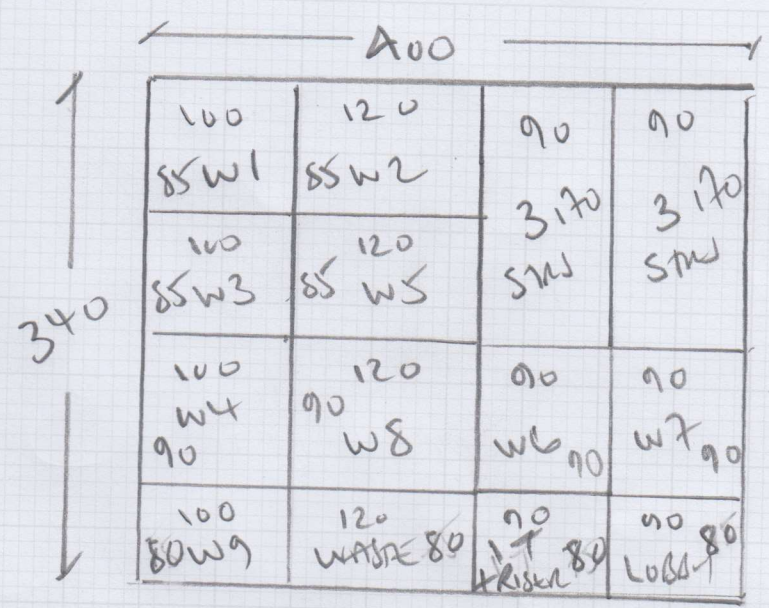 400
340
100
85 W1
120
85 W2
90
3 170
STRS
90
3 170
STRS
100
85 W3
120
85 W5
100
W4
90
120
90
W8
90
W6 90
90
W7 90
100
80 W9
120
WASTE 80
90
IT 80
+RISER
90
LOBBY 80